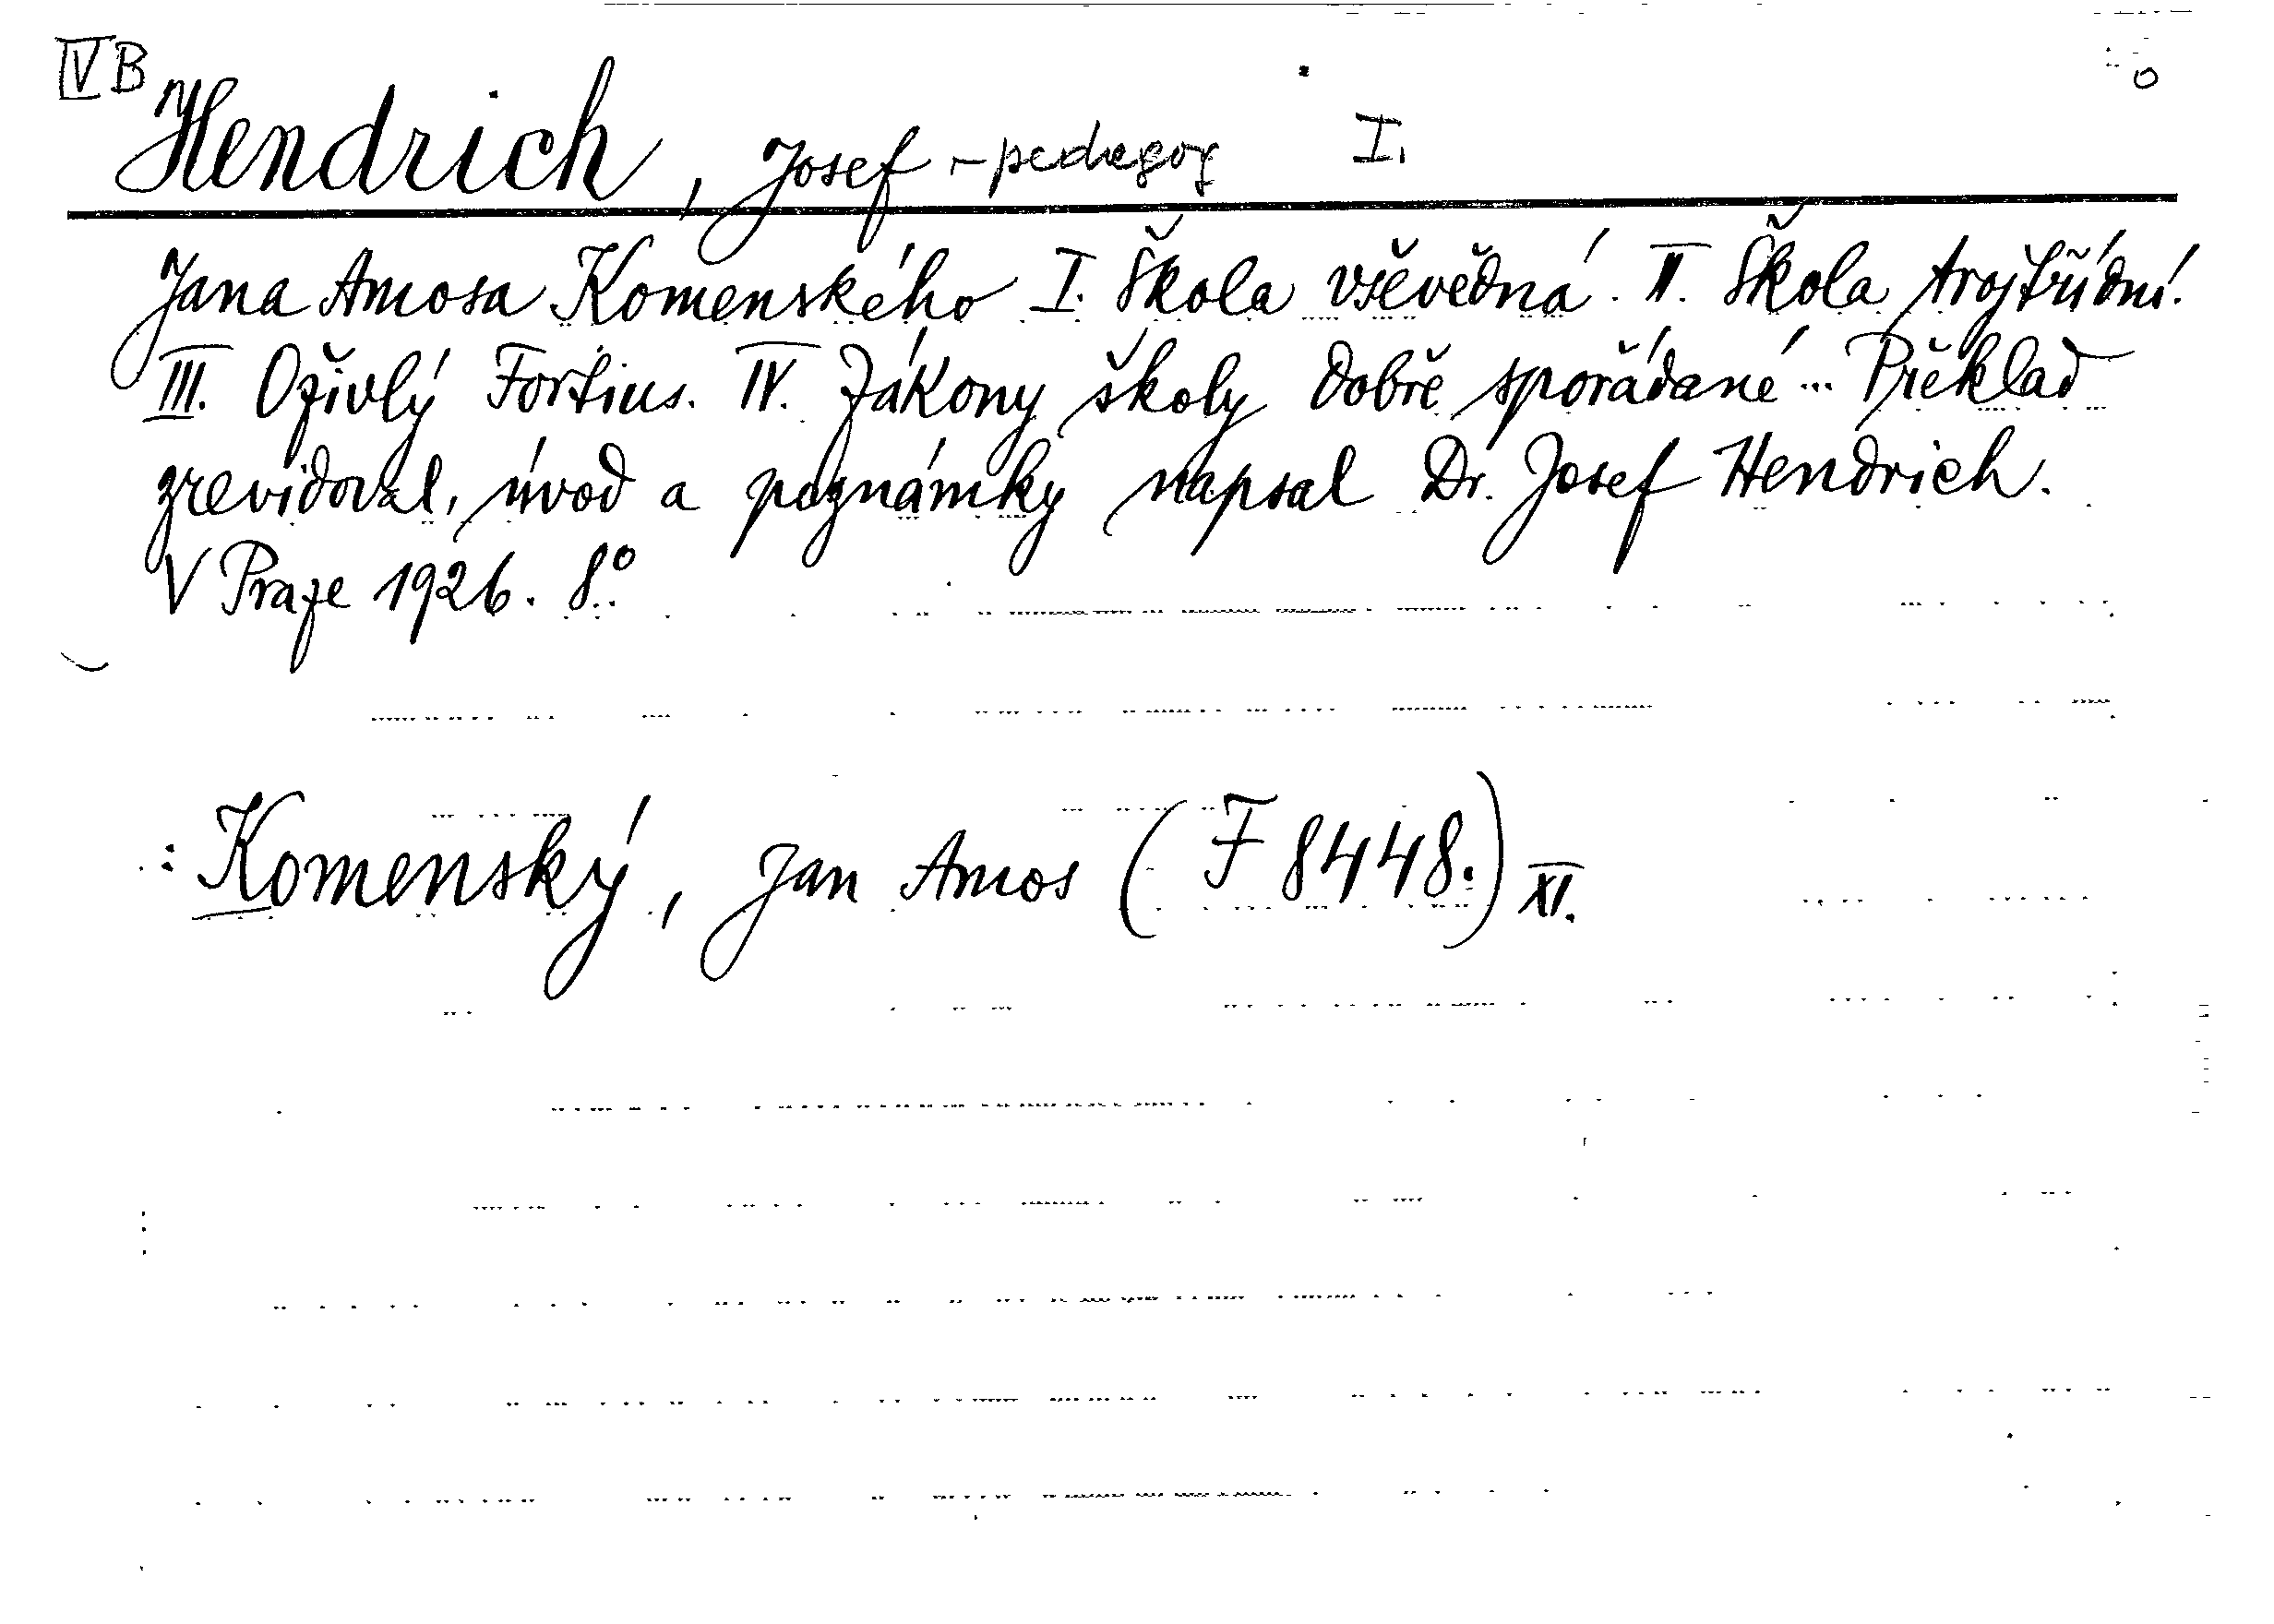 IV B
Hendrich, Josef - pedagog I.
Jana Amosa Komenského I. Škola vševědná. II. Škola trojtřídní.
III. Oživlý Fortius. IV. Zákony školy dobře spořádané... Překlad
zrevidoval, úvod a poznámky napsal Dr. Josef Hendrich.
V Praze 1926. 8°.
: Komenský, Jan Amos (F 8448.) XI.